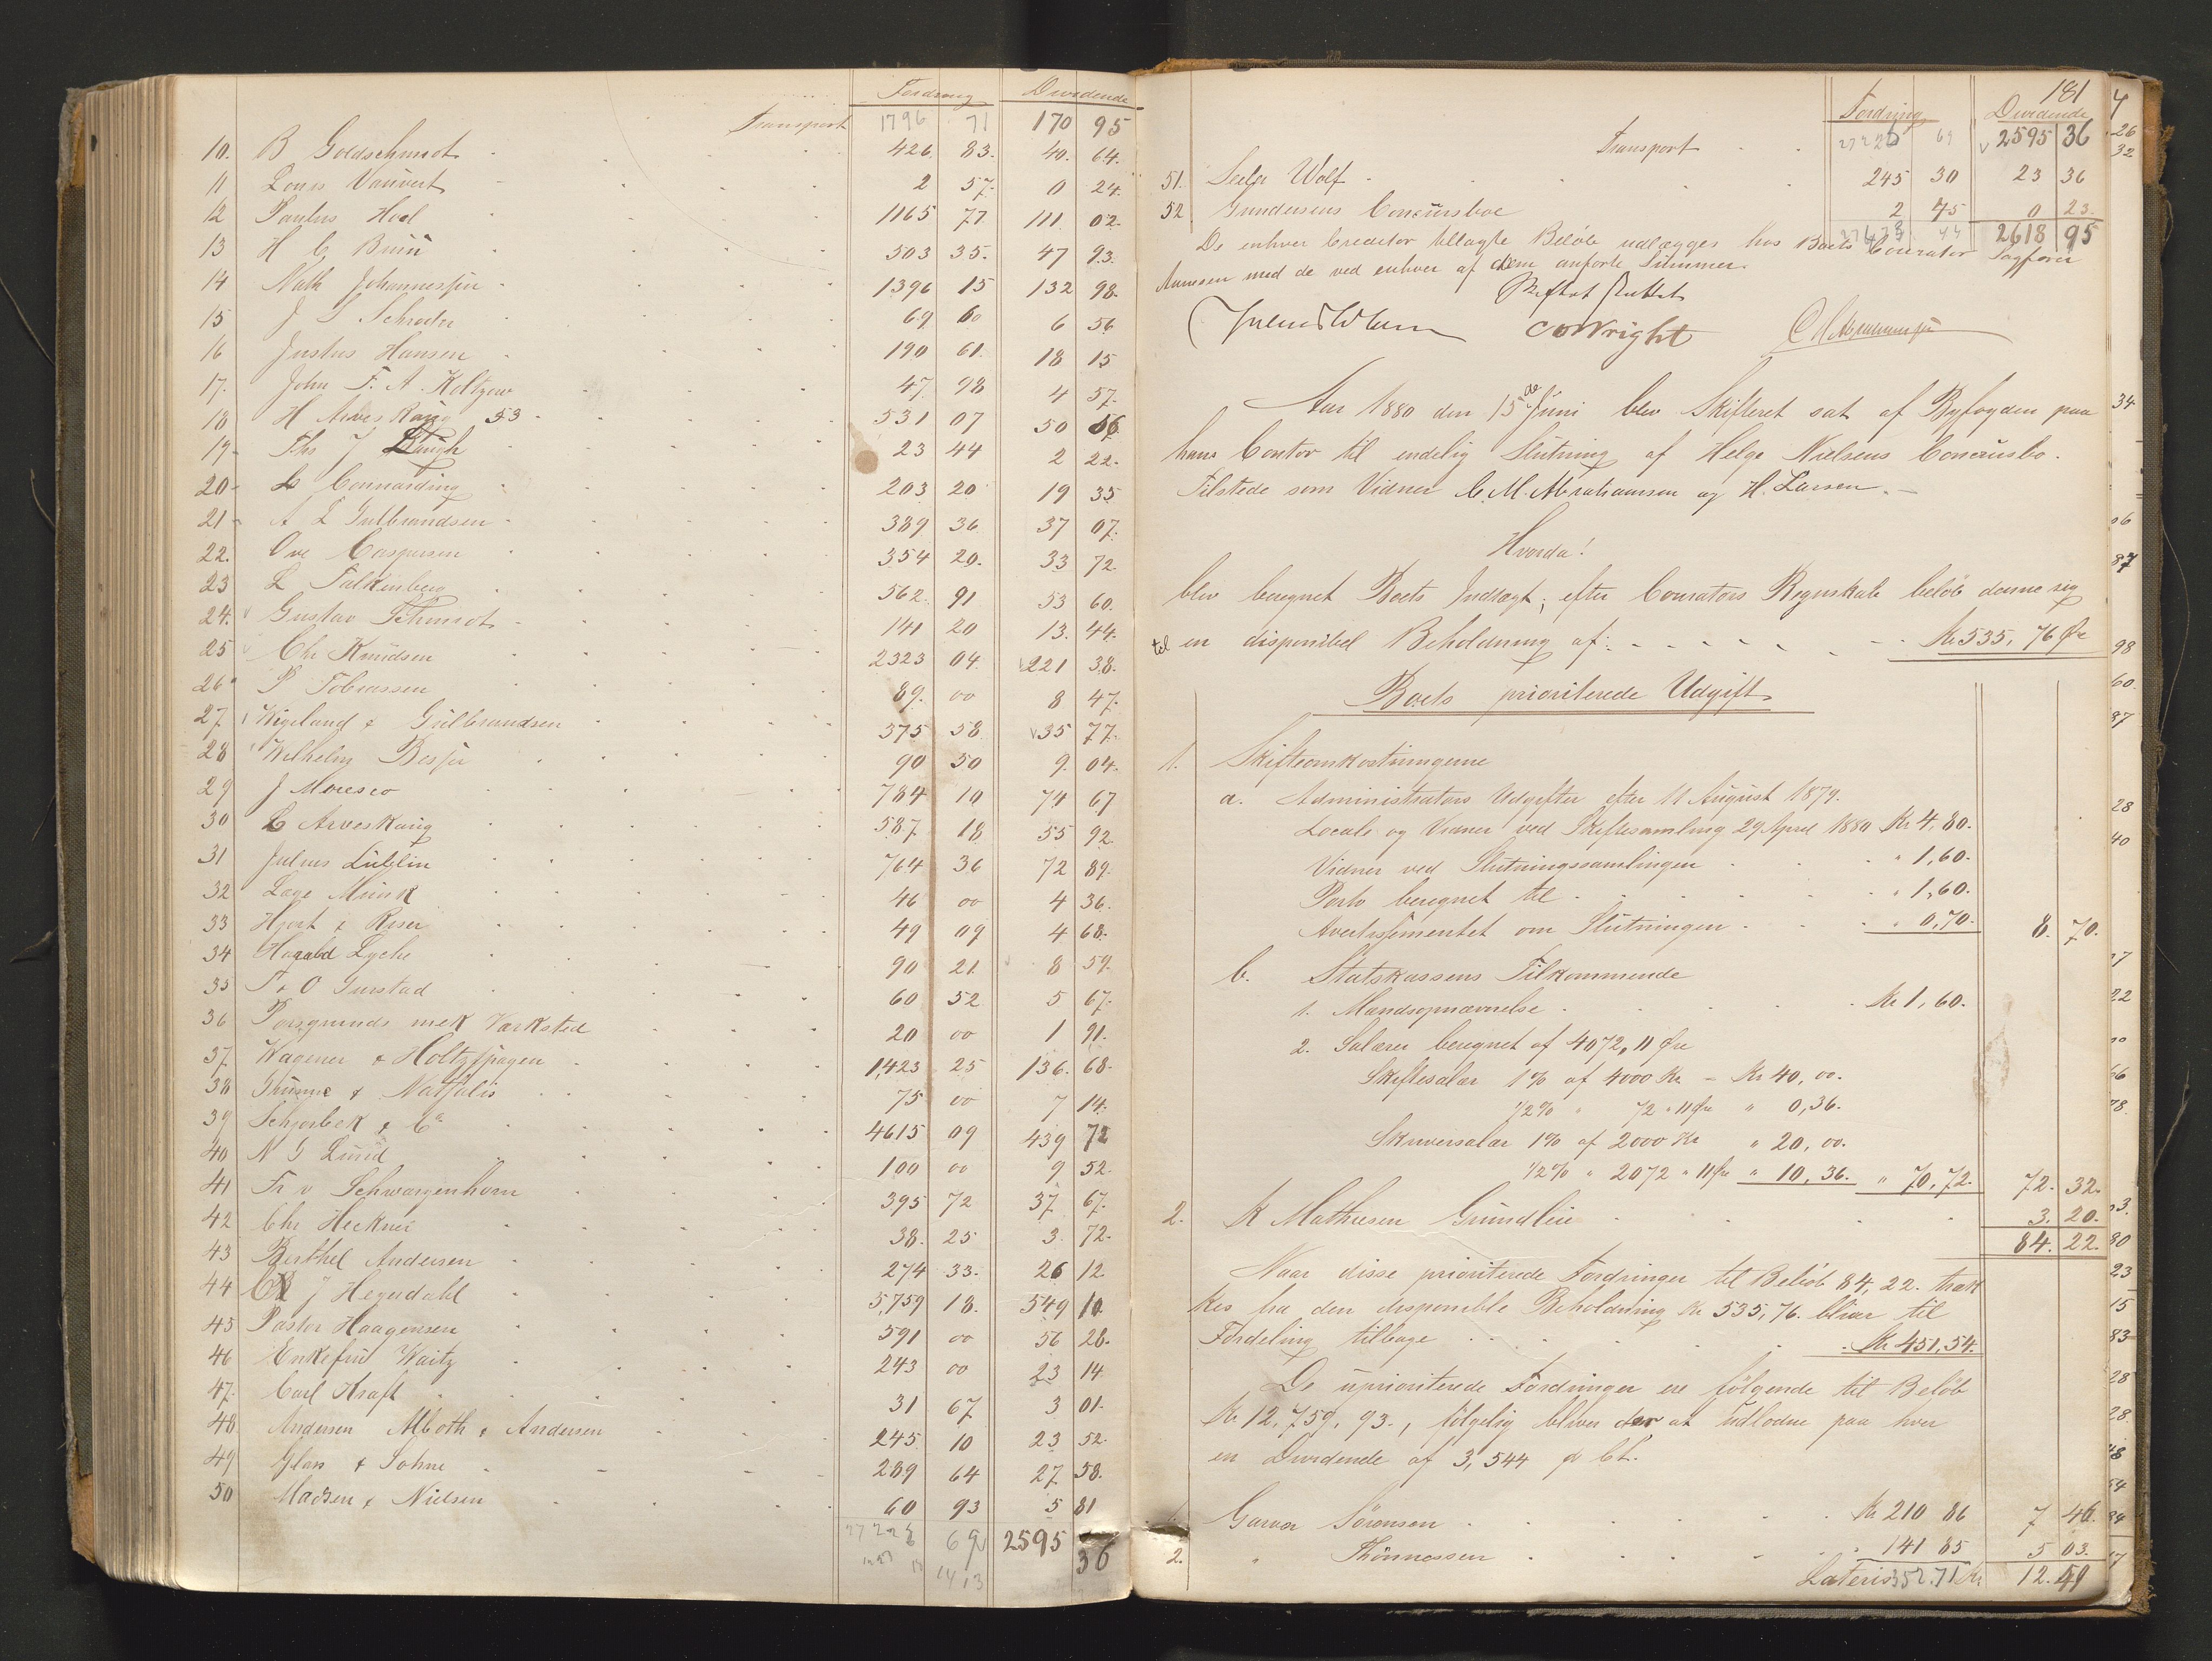 Fordring Dividende
Transport 1796 71 170 95
10. B Goldschmidt 426. 83. 40. 64.
11 Louis Vauvert 2 57. 0 24.
12 Paulus Hoel 1165 77. 111 02.
13 H C Bruun 503 35. 47 93.
14 Nath Johannessen 1396 15 132 98.
15 J S Schrøder 69 60 6 56
16 Justus Hansen 190 61. 18 15
17. John F. A. Koltzow 47. 98 4 57.
18 H Arveskoug 53 531 07 50 56
19 Ths J Baugh 23 44 2 22.
20 C Connarding 203 20 19 35
21 A L Gulbrandsen 389 36 37 07.
22. Ove Caspersen 354 20. 33 72.
23 L Falkenberg 562. 91 53 60.
24. Gustav Schmidt 141 20 13. 44.
25 Chr Knudsen 2323 04. 221 38.
26 P Tobiassen 89. 00 8 47.
27 Wigeland & Gulbrandsen 375 58 35 77.
28 Wilhelm Besser 90 50 9. 04.
29 J Moresco 784 10 74 67
30 L Arveskoug 587 18 55 92.
31 Julius Lublin 764 36 72 89.
32 Lage Munk 46 00 4 36.
33 Hjort & Riser 49 09 4 68.
34 Hagabd Lyche 90 21. 8 59.
35 T & O Gurstad 60 52 5 67.
36 Porsgrunds mek Værksted 20 00 1 91.
37. Wagener & Holtzhagen 1,423 25 136. 68.
38 Thumme & Natfalis 75 00 7 14.
39 Schjorbek & Co 4615 09 439 72
40 N J Lund 100 00 9 52.
41 Fr v Schwarzenhorn 395 72 37 67.
42 Chr Heckner 38. 25 3. 72.
43 Berthel Andersen 274 33. 26 12
44 J Hegerdahl 5,759 18. 549 10.
45 Pastor Haagensen 591 00 56 28.
46 Enkefru Waitz 243 00 23 14
47. Carl Kraft 31 67 3 01.
48 Andersen Mboth & Andersen 245 10 23 52.
49 Glass & Sohne 289 64 27 58.
50 Madsen & Nielsen 60 93 5 81
27228 69 2595 36
181
Fordring Dividende
Transport 27226 69 2595 36
51. Seelig Wolf 245 30 23 36
52 Gundersens Concursboe 2 45 0 23.
2618 95
De enhver Creditor tillagte Beløb udlægges hos Boets Courator Sagfører
Aanesen med de ved enhver af dem anførte Summer.
Skiftet sluttet
CWWright
Aar 1880 den 15de Juni blev Skifteret sat af Byfogden paa
hans Contor til endelig Slutning af Helge Nielsens Concursbo.
Tilstede som Vidner C. M. Abrahamsen og H. Larsen.
Hvorda!
blev beregnet Boets Indtægt; efter Courators Regnskab beløb denne sig
til en disponibel Beholdning af: Kr 535, 76 Øre
Boets prioriterede Udgift
1. Skifteomkostningerne
a. Administrators Udgifter efter 11 August 1879.
Locale og Vidner ved Skiftesamling 29 April 1880 Kr 4,80.
Vidner ved Slutningssamlingen " 1,60.
Porto beregnet til " 1,60.
Avertissementet om Slutningen " 0,70. 8. 70.
b. Statskassens Tilkommende
1. Mandsopnævnelse Kr 1,60.
2. Salærer beregnet af 4072,11 Øre
Skiftesalær 1% af 4000 Kr = Kr 40,00.
1/2% " 72 " 11 Øre " 0,36.
Skriversalær 1% af 2000 Kr " 20,00.
1/2% " 2072 " 11 Øre " 10,36. " 70,72. 72. 32.
2. K Mathiesen Grundleie 3. 20.
84. 22.
Naar disse prioriterede Fordringer til Beløb 84,22. træk
kes fra den disponible Beholdning Kr 535,76. bliver til
Fordeling tilbage Kr 451,54.
De uprioriterede Fordringer ere følgende til Beløb
Kr 12,759, 93., følgelig bliver der at udlodne paa hver
en Dividende af 3,544 p Ct.
1. Garver Sørensen Kr 210 86 7 46.
2. " Thønnessen " 141 85 5 03.
Lateris 352.71 Kr 12. 49